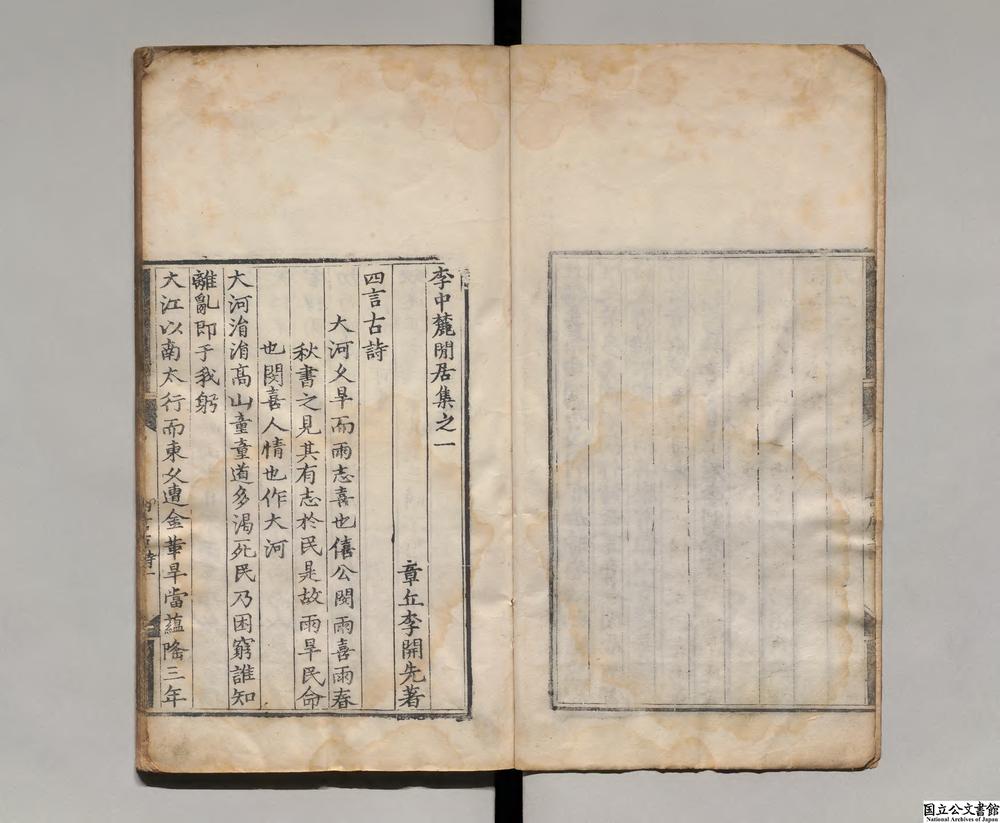 李中麓閒居集之一
章丘李開先著
四言古詩
大河久旱而雨志喜也僖公閔雨喜雨春
秋書之見其有志於民是故雨旱民命
也閔喜人情也作大河
大河湝湝高山童童道多渴死民乃困窮誰知
離亂即于我躬
大江以南太行而東久遭金革旱當蘊隆三年
国立公文書館
National Archives of Japan